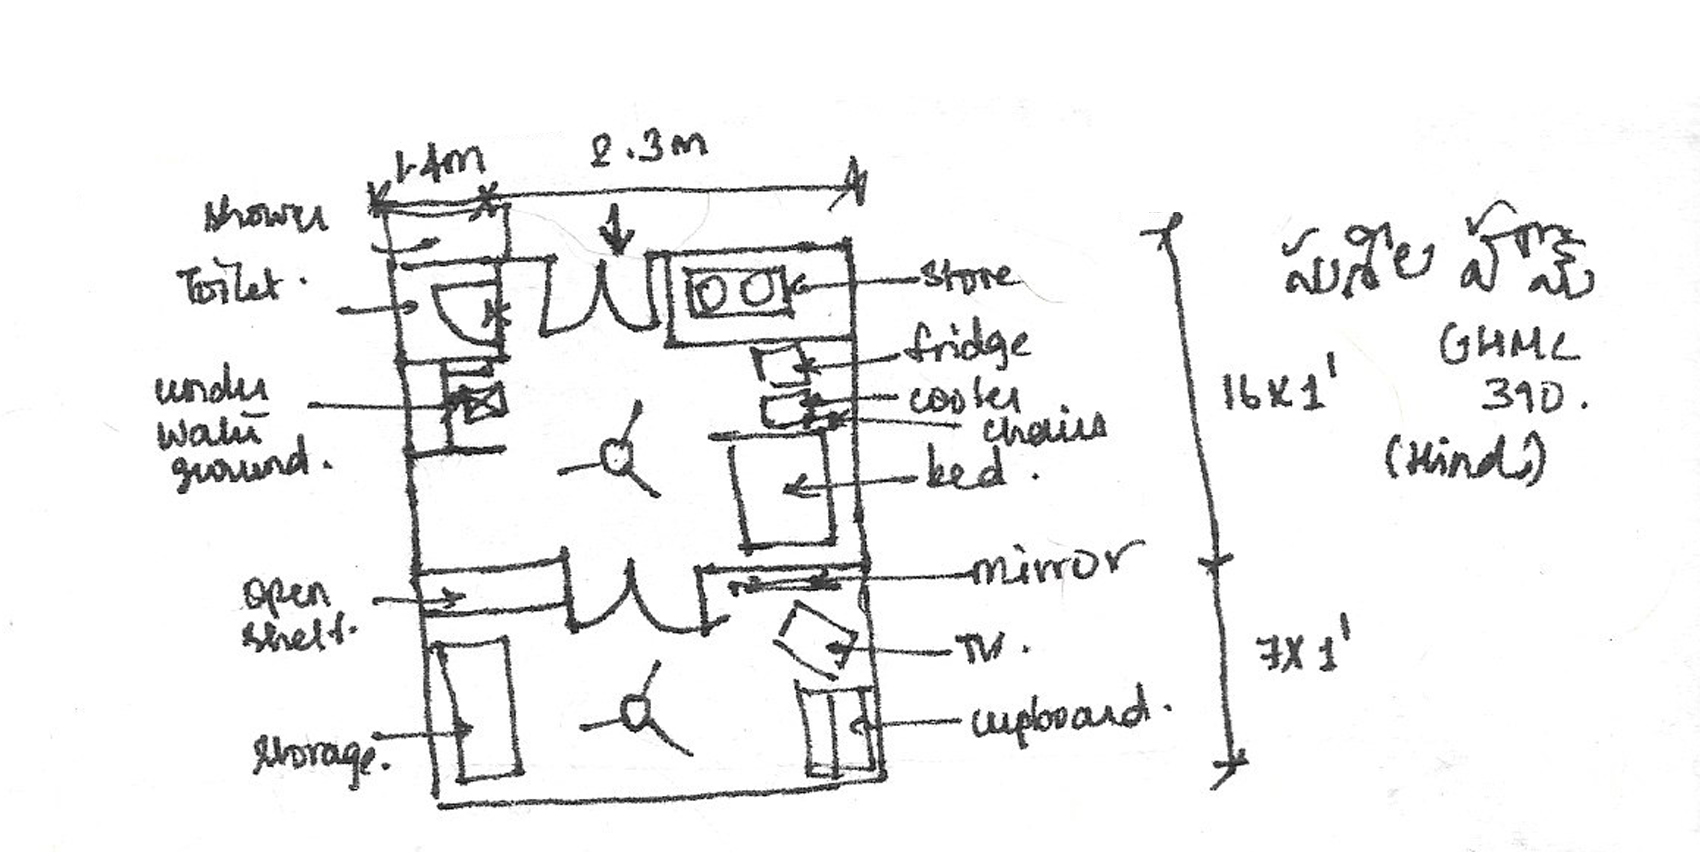 1.4m
2.3m
shower
Toilet.
store
fridge
under
water
ground.
cooler
chairs
bed.
open
shelf.
mirror
TV.
storage.
cupboard.
16x1'
7x1'
GHMC
390.
(Hindi)